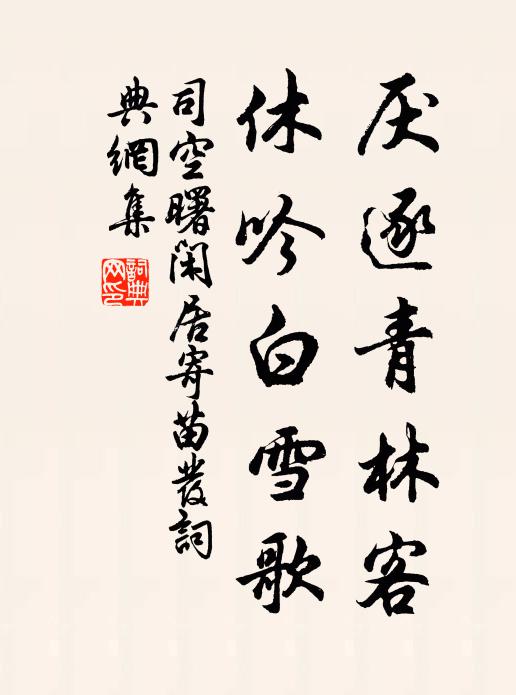 厌逐青林客
休吟白雪歌
司空曙閑居寄苗發詞
典網集
詞典
网印